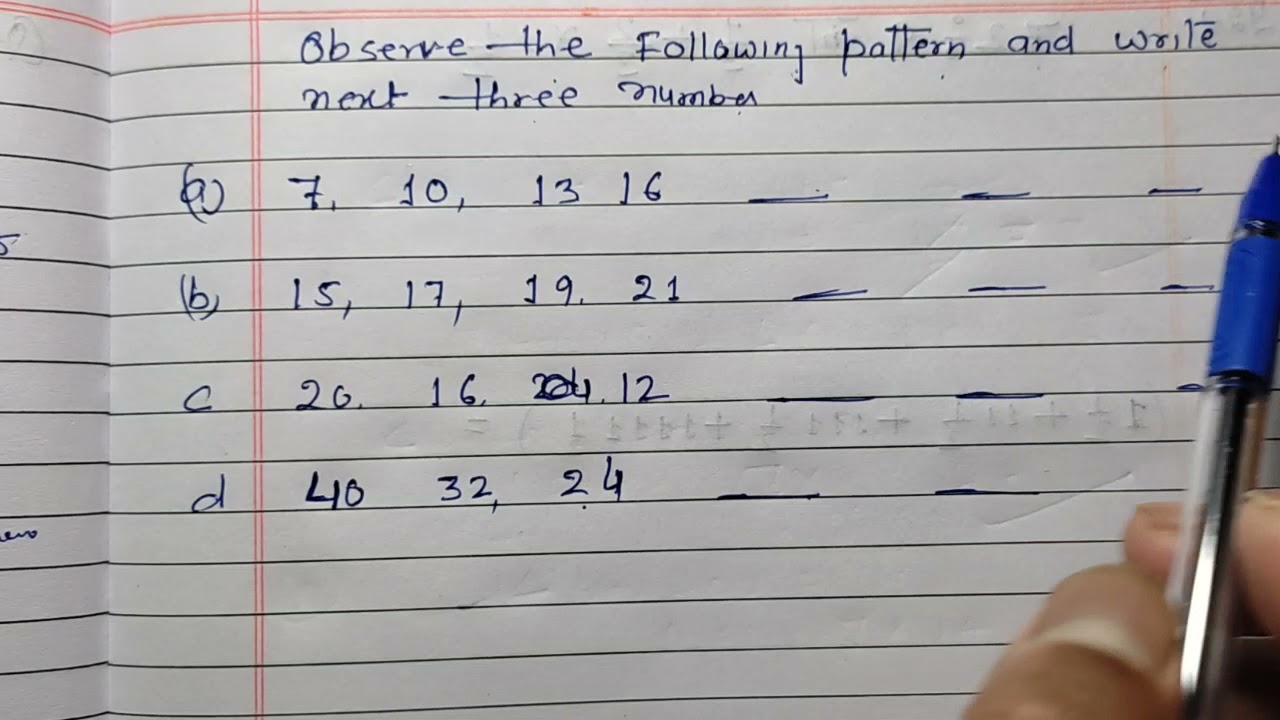 Observe the Following pattern and write
next three number
(a) 7, 10, 13 16
(b) 15, 17, 19. 21
c 20. 16. 12
d 40 32, 24